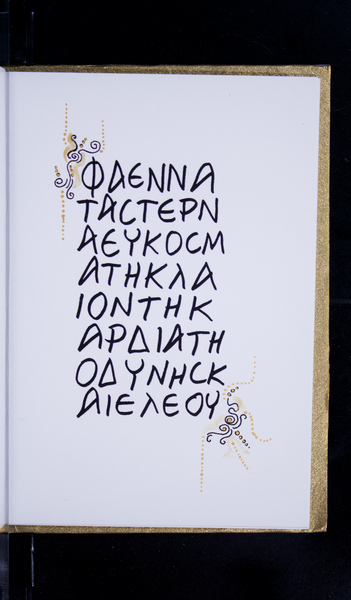 ΦΑΕΝΝΑ
ΤΑϹΤΕΡΝ
ΑΕΥΚΟϹΜ
ΑΤΗΚΛΑ
ΙΟΝΤΗΚ
ΑΡΔΙΑΤΗ
ΟΔΥΝΗϹΚ
ΑΙΕΛΕΟΥ